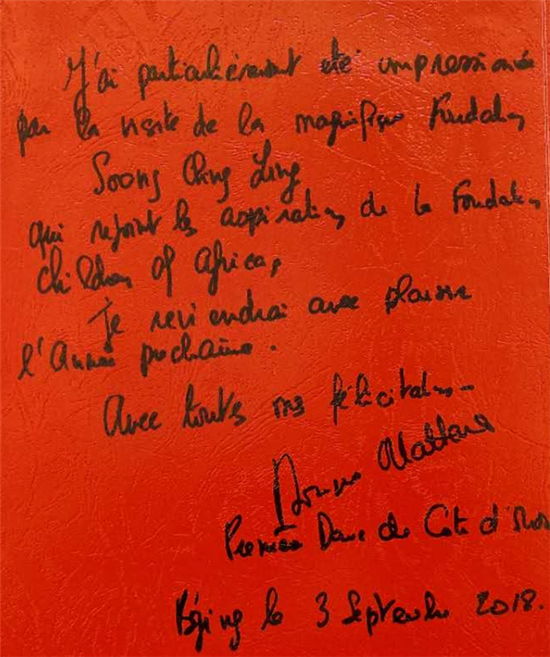 J'ai particulièrement été impressionnée
par la visite de la magnifique Fondation
Soong Ching Ling
qui rejoint les aspirations de la Fondation
Children Of Africa,
Je reviendrai avec plaisir
l'Année prochaine.
Avec toutes mes félicitations
Dominique Ouattara
Première Dame de Côte d'Ivoire
Béijing le 3 Septembre 2018.